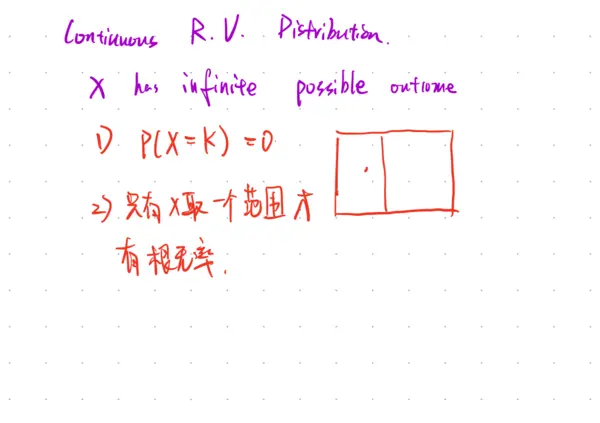 Continuous R.V. Distribution.
X has infinite possible outcome
1) P(X=K)=0
2) 只有X取一个范围才
有概率.